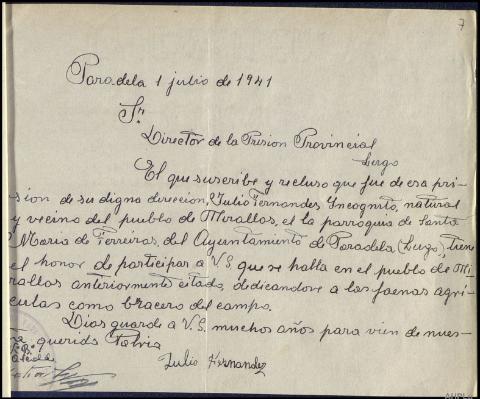 7
Paradela 1 julio de 1941
Sr.
Director de la Prision Provincial
Lugo
El que suscribe y recluso que fue de esa pri-
sion de su digna dirección, Julio Fernandes Incognito, natural
y vecino del pueblo de Mirallos, el la parroquia de Santa
Maria de Ferreiros, del Ayuntamiento de Paradela (Lugo), tiene
el honor de participar a V.S. que se halla en el pueblo de Mi
rallos anteriormente citado, dedicandose a las faenas agri-
culas como bracero del campo.
Dios guarde a V.S. muchos años para vien de nues-
querida Patria
Julio Fernandez